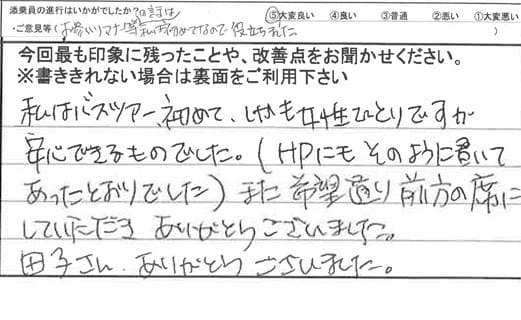 添乗員の進行はいかがでしたか？の話は ⑤大変良い ④良い ③普通 ②悪い ①大変悪い
・ご意見等(お参りマナー等私は初めてなので役立ちました )
今回最も印象に残ったことや、改善点をお聞かせください。
※書ききれない場合は裏面をご利用下さい
私はバスツアー初めて、しかも女性ひとりですが
安心できるものでした。(HPにもそのように書いて
あったとおりでした) また希望通り前方の席に
していただき ありがとうございました。
田子さん、ありがとうございました。